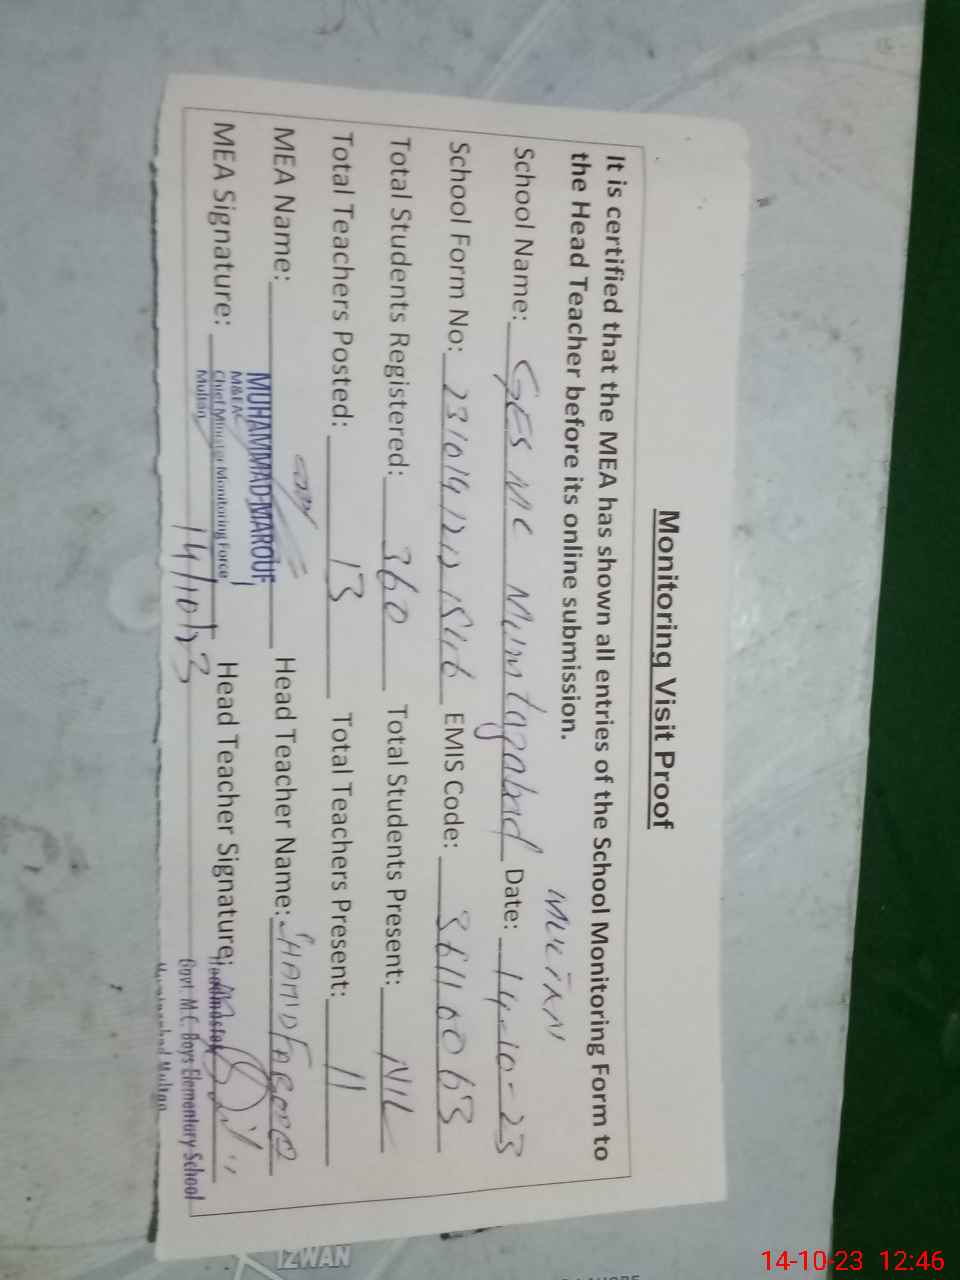 Monitoring Visit Proof
It is certified that the MEA has shown all entries of the School Monitoring Form to
the Head Teacher before its online submission.
MULTAN
School Name: GES MC Mumtazabad Date: 14-10-23
School Form No: EMIS Code: 36110063
Total Students Registered: 360 Total Students Present: NIL
Total Teachers Posted: 13 Total Teachers Present: 11
MEA Name: Head Teacher Name:
MUHAMMAD MAROUF
M&EA
Chief Minister Monitoring Force
Multan
MEA Signature: 14/10/23 Head Teacher Signature:
Headmaster
Govt. M.C. Boys Elementary School
Mumtazabad Multan
IZWAN
14-10-23 12:46